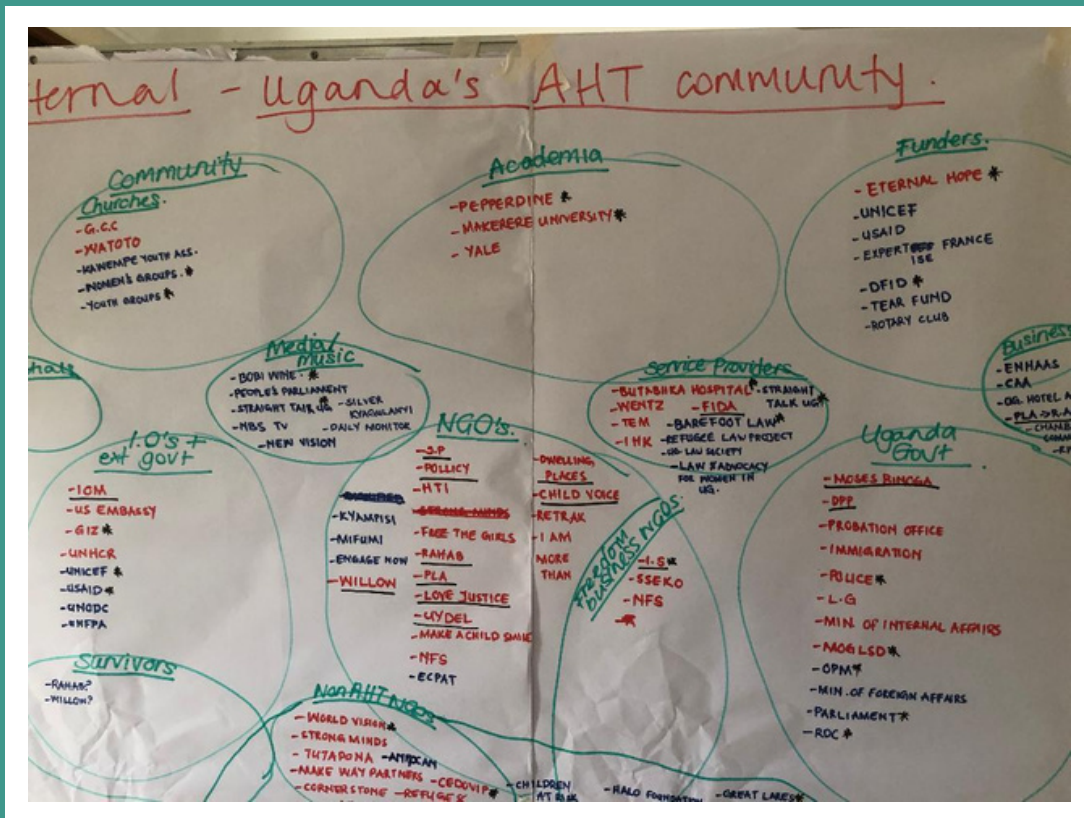 ternal - Uganda's AHT community.
Community
Churches.
- G.C.C
- WATOTO
- KAWEMPE YOUTH ASS.
- WOMEN'S GROUPS. *
- YOUTH GROUPS *
Academia
- PEPPERDINE *
- MAKERERE UNIVERSITY *
- YALE
Funders.
- ETERNAL HOPE *
- UNICEF
- USAID
- EXPERTISE FRANCE
- DFID *
- TEAR FUND
- ROTARY CLUB
Media/
Music
- BOBI WINE. *
- PEOPLE'S PARLIAMENT
- STRAIGHT TALK UG * - SILVER KYAGULANYI
- NBS TV - DAILY MONITOR
- NEW VISION
Service Providers
- BUTABIKA HOSPITAL * - STRAIGHT TALK UG *
- WENTZ - FIDA
- TEM - BAREFOOT LAW *
- IHK - REFUGEE LAW PROJECT
- UG LAW SOCIETY
- LAW & ADVOCACY
FOR WOMEN IN
UG.
Business
- ENHAAS
- CAA
- UG. HOTEL A
- PLA
I.O's +
ext govt
- IOM
- US EMBASSY
- GIZ *
- UNHCR
- UNICEF *
- USAID *
- UNODC
- UNFPA
NGO's.
- KYAMPISI
- MIFUMI
- ENGAGE NOW
- WILLOW
- J.P
- POLLICY
- HTI
- STRONG MINDS
- FREE THE GIRLS
- RAHAB
- PLA
- LOVE JUSTICE
- UYDEL
- MAKE A CHILD SMILE
- NFS
- ECPAT
- DWELLING
PLACES
- CHILD VOICE
- RETRAK
- I AM
MORE
THAN
FREEDOM
business NGOs.
- I.S *
- SSEKO
- NFS
Uganda
Govt
- MOSES BINOGA
- DPP
- PROBATION OFFICE
- IMMIGRATION
- POLICE *
- L.G
- MIN. OF INTERNAL AFFAIRS
- MOGLSD *
- OPM *
- MIN. OF FOREIGN AFFAIRS
- PARLIAMENT *
- RDC *
Survivors
- RAHAB?
- WILLOW?
Non AHT NGOs
- WORLD VISION *
- STRONG MINDS
- TUTAPONA
- MAKE WAY PARTNERS - CEDOVIP *
- CORNERSTONE - REFUGE &
- CHILDREN
AT RISK
- HALO FOUNDATION
- GREAT LAKES *